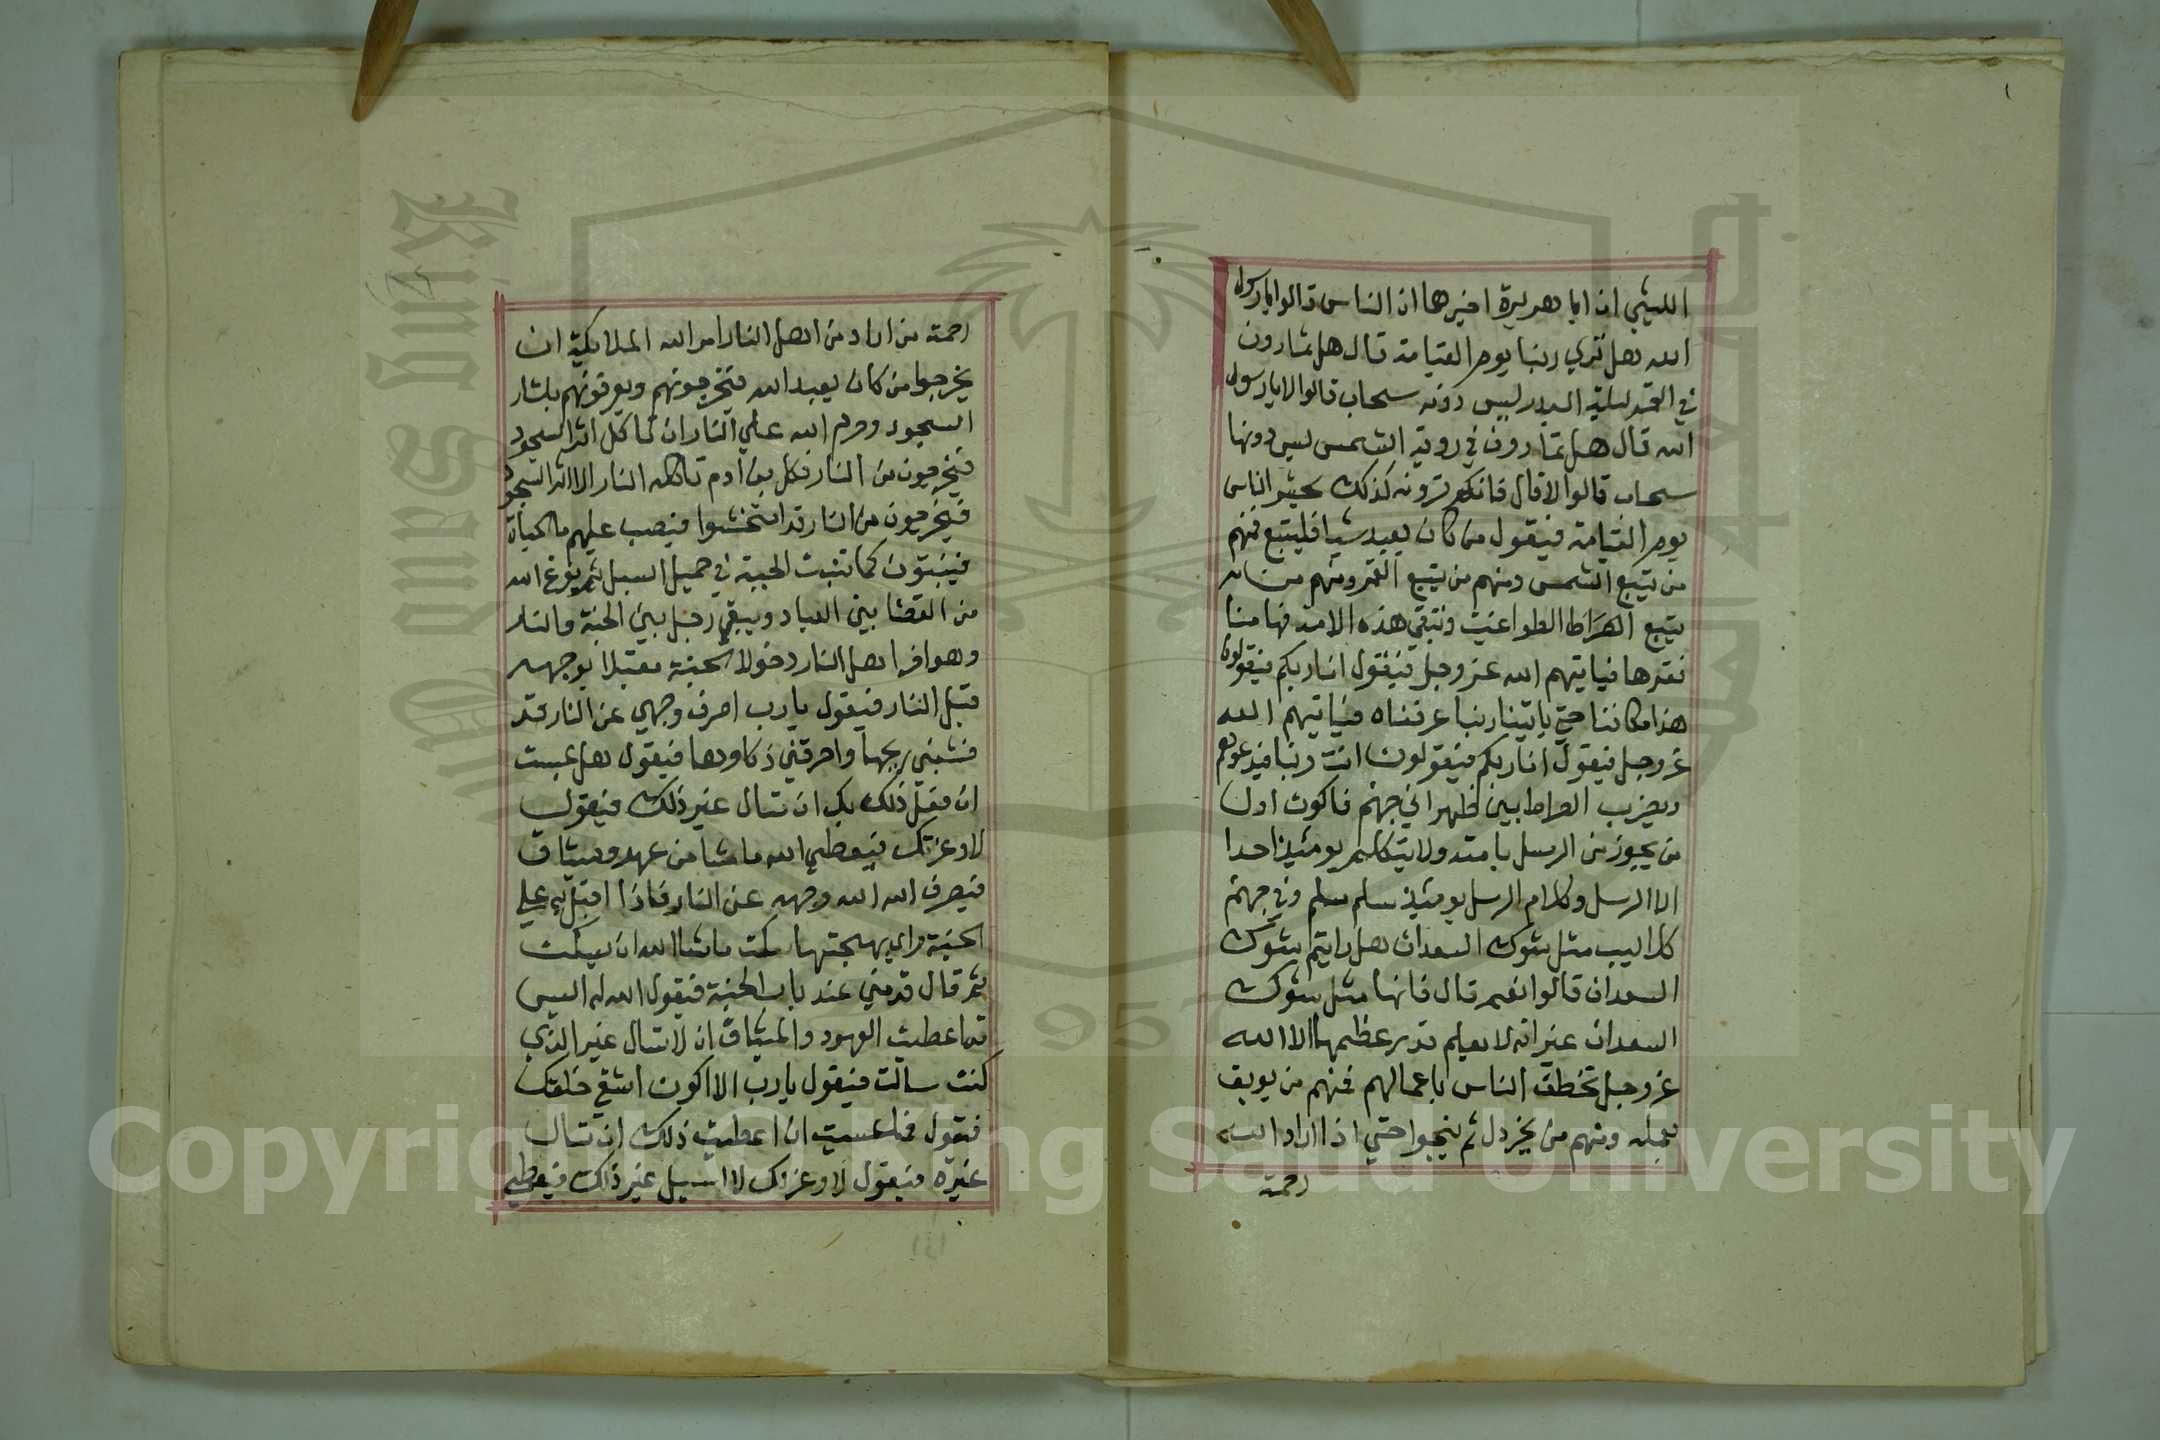 الليثي ان ابا هريرة اخبرها ان الناس قالوا يا رسول
الله هل نري ربنا يوم القيامة قال هل تمارون
في القمر ليلة البدر ليس دونه سحاب قالوا لا يا رسول
الله قال هل تمارون في روية الشمس ليس دونها
سحاب قالوا لا قال فانكم ترونه كذلك يحشر الناس
يوم القيامة فيقول من كان يعبد شيا فليتبع فمنهم
من يتبع الشمس ومنهم من يتبع القمر ومنهم من
يتبع الطواغيت وتبقي هذه الامة فيها منا
فقرها فياتيهم الله عز وجل فيقول انا ربكم فيقولون
هذا مكاننا حتي ياتينا ربنا عرفناه فياتيهم الله
عز وجل فيقول انا ربكم فيقولون انت ربنا فيدعوهم
ويضرب الصراط بين ظهراني جهنم فاكون اول
من يجوز من الرسل بامته ولا يتكلم يومئذ احدا
الا الرسل وكلام الرسل يومئذ سلم سلم وفي جهنم
كلاليب مثل شوك السعدان هل رايتم شوك
السعدان قالوا نعم قال فانها مثل شوك
السعدان غير انه لا يعلم قدر عظمها الا الله
عز وجل تخطف الناس باعمالهم فمنهم من يوبق
بعمله ومنهم من يخردل ثم ينجوا حتي اذا اراد الله
رحمة
رحمة من اراد من اهل النار امر الله الملايكة ان
يخرجوا من كان يعبد الله فيخرجونهم ويعرفونهم باثار
السجود وحرم الله علي النار ان تاكل اثر السجود
فيخرجون من النار فكل بن ادم تاكله النار الا اثر السجود
فيخرجون من النار قد امتحشوا فيصب عليهم ما الحياة
فينبتون كما تنبت الحبة في حميل السيل ثم يفرغ الله
من القضا بين العباد ويبقي رجل بين الجنة والنار
وهو اخر اهل النار دخولا الجنة مقبلا بوجهه
قبل النار فيقول يا رب اصرف وجهي عن النار قد
قشبني ريحها واحرقني ذكاوها فيقول هل عسيت
ان فعل ذلك بك ان تسال غير ذلك فيقول
لا وعزتك فيعطي الله ما شا من عهد وميثاق
فيصرف الله الله وجهه عن النار فاذا اقبل به علي
الجنة وراي بهجتها سكت ما شا الله ان يسكت
ثم قال قدمني عند باب الجنة فيقول الله له اليس
قد اعطيت العهود والميثاق ان لا تسال غير الذي
كنت سالت فيقول يا رب الا اكون اشقي خلقك
فيقول فما عسيت ان اعطيت ذلك ان تسال
غيره فيقول لا وعزتك لا اسيل غير ذلك فيعطي
Copyright © King Saud University